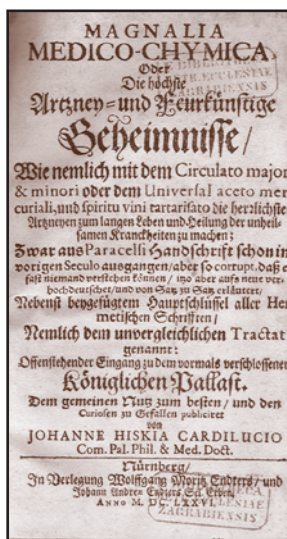 MAGNALIA
MEDICO-CHYMICA,
Oder
Die höchste
Artzney- und Feurkünstige
Geheimnisse/
Wie nemlich mit dem Circulato majori
& minori oder dem Universal aceto mer
curiali, und spiritu vini tartarisato die herrlichste
Artzneyen zum langen Leben und Heilung der unheil-
samen Kranckheiten zu machen;
Zwar aus Paracelsi Handschrifft schon im
vorigen Seculo ausgangen/ aber so corrupt, daß es
fast niemand verstehen können/ itzo aber aufs neue ver-
hochdeutschet/ und von Satz zu Satz erläutert/
Nebenst beygefügtem Hauptschlüssel aller Her
metischen Schrifften/
Nemlich dem unvergleichlichen Tractat
genannt:
Offenstehender Eingang zu dem vormals verschlossenen
Königlichen Pallast.
Dem gemeinen Nutz zum besten/ und den
Curiosen zu Gefallen publiciret
von
JOHANNE HISKIA CARDILUCIO
Com. Pal. Phil. & Med. Doct.
Nürnberg/
In Verlegung Wolffgang Moritz Endters/ und
Johann Andreæ Endters Sel. Erben.
ANNO M. DC. LXXVI.
ZAGRABIENSIS